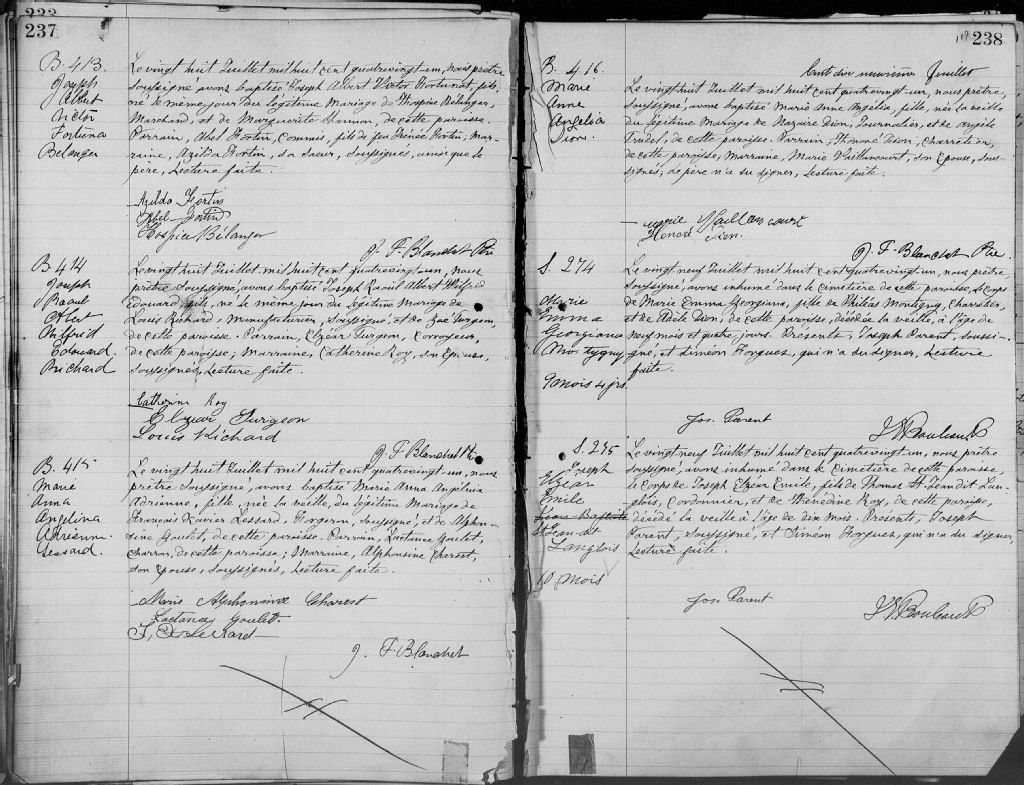 233
237
B. 413
Joseph
Albert
Victor
Fortuna
Belanger
Le vingt huit Juillet mil huit cent quatrevingt-un, nous prêtre
soussigné, avons baptisé Joseph Albert Victor Fortunat, fils,
né le même jour du légitime Mariage de Hospice Bélanger,
Marchand, et de Marguerite Hamon, de cette paroisse.
Parrain, Abel Fortin, Commis, fils de feu Irénée Fortin, Mar-
raine, Azilda Fortin, sa soeur, soussignés, ainsi que le
père, Lecture faite.
Azilda Fortin
Abel Fortin
Hospice Bélanger
J. F. Blanchet Ptre
B. 414
Joseph
Raoul
Albert
Wilfrid
Edouard
Richard
Le vingt huit Juillet mil huit cent quatrevingt-un, nous
prêtre soussigné, avons baptisé Joseph Raoul Albert Wilfrid
Edouard, fils, né le même jour du légitime Mariage de
Louis Richard, Manufacturier, soussigné, et de Zoé Turgeon,
de cette paroisse. Parrain, Elzéar Turgeon, Corroyeur,
de cette paroisse; Marraine, Catherine Roy, son Epouse,
soussignés, Lecture faite.
Catherine Roy
Elzear Turgeon
Louis Richard
J. F. Blanchet Ptre
B. 415
Marie
Anna
Angelina
Adrienne
Lessard.
Le vingt huit Juillet mil huit cent quatrevingt-un, nous
prêtre soussigné, avons baptisé Marie Anna Angélina
Adrienne, fille, née la veille, du légitime Mariage de
François Xavier Lessard, Forgeron, soussigné, et de Alphon-
sine Goulet, de cette paroisse. Parrain, Lactance Goulet,
charron, de cette paroisse; Marraine, Alphonsine Charest,
son Epouse, soussignés, Lecture faite.
Marie Alphonsine Charest
Lactance Goulet.
F. X. Lessard
J. F. Blanchet
238
B. 416.
Marie
Anne
Angélia
Dion
Cent dix neuvième feuillet
Le vingt huit Juillet mil huit cent quatrevingt-un, nous prêtre,
soussigné, avons baptisé Marie Anne Angélia, fille, née la veille
du légitime Mariage de Nazaire Dion, Journalier, et de Angèle
Trudel, de cette paroisse. Parrain, Honoré Dion, Charretier,
de cette paroisse, Marraine, Marie Vaillancourt, son Epouse, sous-
signés; le père n'a su signer, Lecture faite.
Marie Vaillancourt
Honoré Dion.
J. F. Blanchet Ptre.
S. 274
Marie
Emma
Georgiana
Montigny
9 mois 4 jrs.
Le vingt neuf Juillet mil huit cent quatrevingt-un, nous prêtre
soussigné, avons inhumé dans le cimetière de cette paroisse, le Corps
de Marie Emma Georgiana, fille de Philias Montigny, Charretier,
et de Adèle Dion, de cette paroisse, décédée la veille, à l'âge de
neuf mois et quatre jours. Présents, Joseph Parent, soussi-
gné, et Siméon Forgues, qui n'a du signer, Lecture
faite.
Jos. Parent
S. 275
Joseph
Elzear
Emile
Jean Baptiste
St Jean dit
Langlois
10 mois
Le vingt neuf Juillet mil huit cent quatrevingt-un, nous prêtre
soussigné, avons inhumé dans le cimetière de cette paroisse,
le Corps de Joseph Elzear Emile, fils de Thomas St. Jean dit Lan-
glois, Cordonnier, et de Roy, de cette paroisse,
décédé la veille à l'âge de dix mois. Présents, Joseph
Parent, soussigné, et Siméon Forgues, qui n'a du signer,
Lecture faite.
Jos. Parent